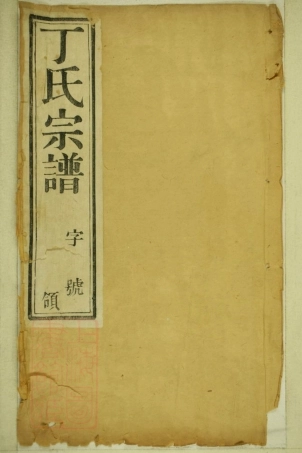 丁氏宗譜
字號
領